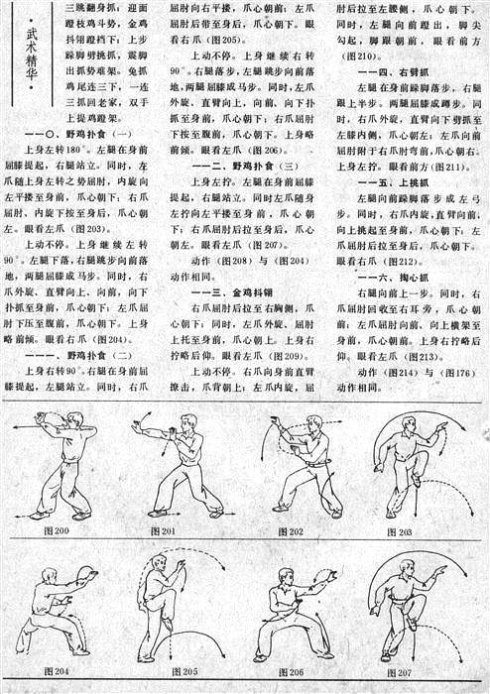 ·武术精华·
三跳翻身抓；迎面
蹬枝鸡斗势，金鸡
抖翎蹬裆下；上步
跺脚劈挑抓，震脚
出抓势难架。兔抓
鸡尾连三下，一连
三抓回老家，双手
上提鸡蹬架。
一一〇、野鸡扑食（一）
上身左转180°。左腿在身前
屈膝提起，右腿站立。同时，左
爪随上身左转之势屈肘，内旋向
左平搂至身前，爪心朝下；右爪
屈肘、内旋下按至身后，爪心朝
左。眼看左爪（图203）。
上动不停。上身继续左转
90°。左腿下落，右腿跳步向前落
地，两腿屈膝成马步。同时，右
爪外旋、直臂向上、向前、向下
扑抓至身前，爪心朝下；左爪屈
肘下压至腹前，爪心朝下。上身
略前倾。眼看右爪（图204）。
一一一、野鸡扑食（二）
上身右转90°。右腿在身前屈
膝提起，左腿站立。同时，右爪
屈肘向右平搂，爪心朝前；左爪
屈肘后带至身后，爪心朝下。眼
看右爪（图205）。
上动不停。上身继续右转
90°。右腿落步，左腿跳步向前落
地，两腿屈膝成马步。同时，左爪
外旋、直臂向上、向前、向下扑
抓至身前，爪心朝下；右爪屈肘
下按至腹前，爪心朝下。上身略
前倾。眼看左爪（图206）。
一一二、野鸡扑食（三）
上身左拧。左腿在身前屈膝
提起，右腿站立。同时左爪随身
左拧向左平搂至身前，爪心朝
下；右爪屈肘后拉至身后，爪心
朝左。眼看左爪（图207）。
动作（图208）与（图204）
动作相同。
一一三、金鸡抖翎
右爪屈肘后拉至右胸侧，爪
心朝下；同时，左爪外旋、屈肘
上托至身前，爪心朝上。上身右
拧略后仰。眼看左爪（图209）。
上动不停。右爪向身前直臂
撩击，爪背朝上；左爪内旋，屈
肘后拉至左腰侧，爪心朝下。
同时，左腿向前蹬出，脚尖
勾起，脚跟朝前。眼看前方
（图210）。
一一四、右臂抓
左腿在身前跺脚落步，右腿
跟上半步。两腿屈膝成蹲步。同
时，右爪外旋，直臂向下劈抓至
左膝内侧，爪心朝左；左爪向前
屈肘附于右爪肘弯前，爪心朝右。
上身左拧。眼看前方（图211）。
一一五、上挑抓
左腿向前跺脚落步成左弓
步。同时，右爪内旋，直臂向前、
向上挑起至身前，爪心朝下；左
爪屈肘后拉至身后，爪心朝下。
眼看右爪（图212）。
一一六、掏心抓
右腿向前上一步。同时，右
爪屈肘回收至右耳旁，爪心朝
前；左爪屈肘向前、向上横架至
身前，爪心朝前。上身右拧略后
仰。眼看左爪（图213）。
动作（图214）与（图176）
动作相同。
图200
图201
图202
图203
图204
图205
图206
图207